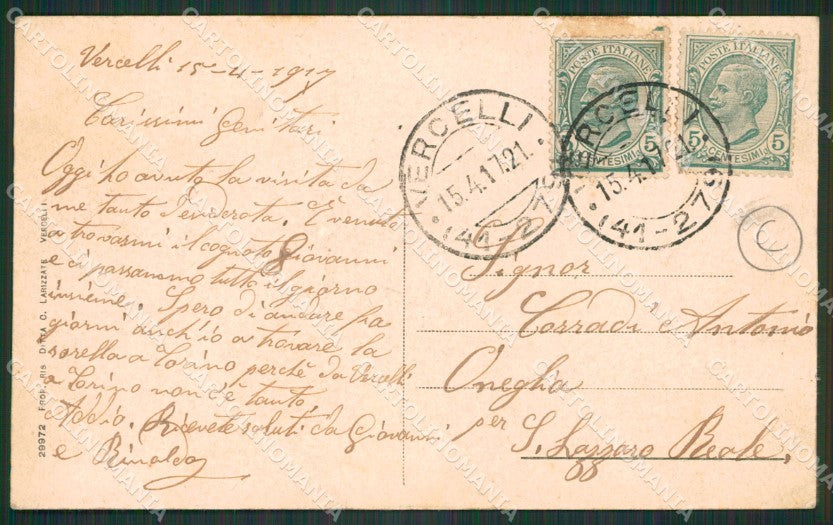 Vercelli 15-4-1917
Carissimi Genitori
Oggi ho avuto la visita da
me tanto desiderata. È venuto
a trovarmi il cognato Giovanni
e ci passammo tutto il giorno
insieme. Spero di andare fra
giorni anch'io a trovare la
sorella a Torino perchè da Vercelli
a Torino non c'è tanto.
Addio. Ricevete saluti da Giovanni
e Rinaldo
Signor
Corradi Antonio
Oneglia
per S. Lazzaro Reale.
POSTE ITALIANE
5 CENTESIMI 5
POSTE ITALIANE
5 CENTESIMI 5
VERCELLI
15.4.17.21.
(41-275)
VERCELLI
15.4.17.21.
(41-275)
29972 PROP. RIS. DITTA C. LARIZZATE VERCELLI
CARTOLINOMANIA